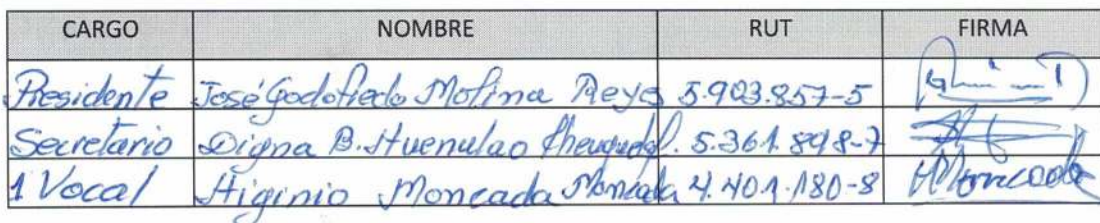 CARGO NOMBRE RUT FIRMA
Presidente José Godofredo Molina Reyes 5.903.857-5
Secretario Digna B. Huenulao 5.361.898-7
1 Vocal Higinio Moncada Moncada 4.401.180-8 HMoncada